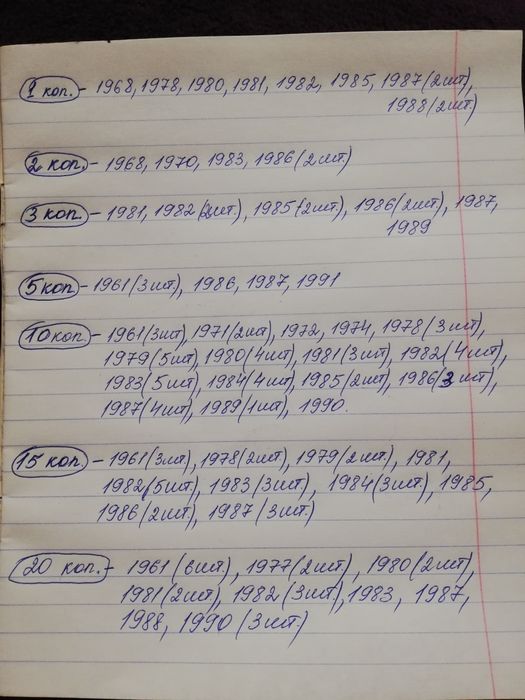 1 коп. - 1968, 1978, 1980, 1981, 1982, 1985, 1987 (2шт),
1988 (2шт)
2 коп. - 1968, 1970, 1983, 1986 (2шт.)
3 коп. - 1981, 1982 (2шт.), 1985 (2шт), 1986 (2шт), 1987,
1989
5 коп. - 1961 (3шт), 1986, 1987, 1991
10 коп. - 1961 (3шт), 1971 (2шт), 1972, 1974, 1978 (3шт),
1979 (5шт), 1980 (4шт), 1981 (3шт), 1982 (4шт),
1983 (5шт), 1984 (4шт), 1985 (2шт), 1986 (3шт),
1987 (4шт), 1989 (1шт), 1990.
15 коп. - 1961 (3шт), 1978 (2шт), 1979 (2шт), 1981,
1982 (5шт), 1983 (3шт), 1984 (3шт), 1985,
1986 (2шт), 1987 (3шт)
20 коп. - 1961 (6шт), 1977 (2шт), 1980 (2шт),
1981 (2шт), 1982 (3шт), 1983, 1987,
1988, 1990 (3шт)